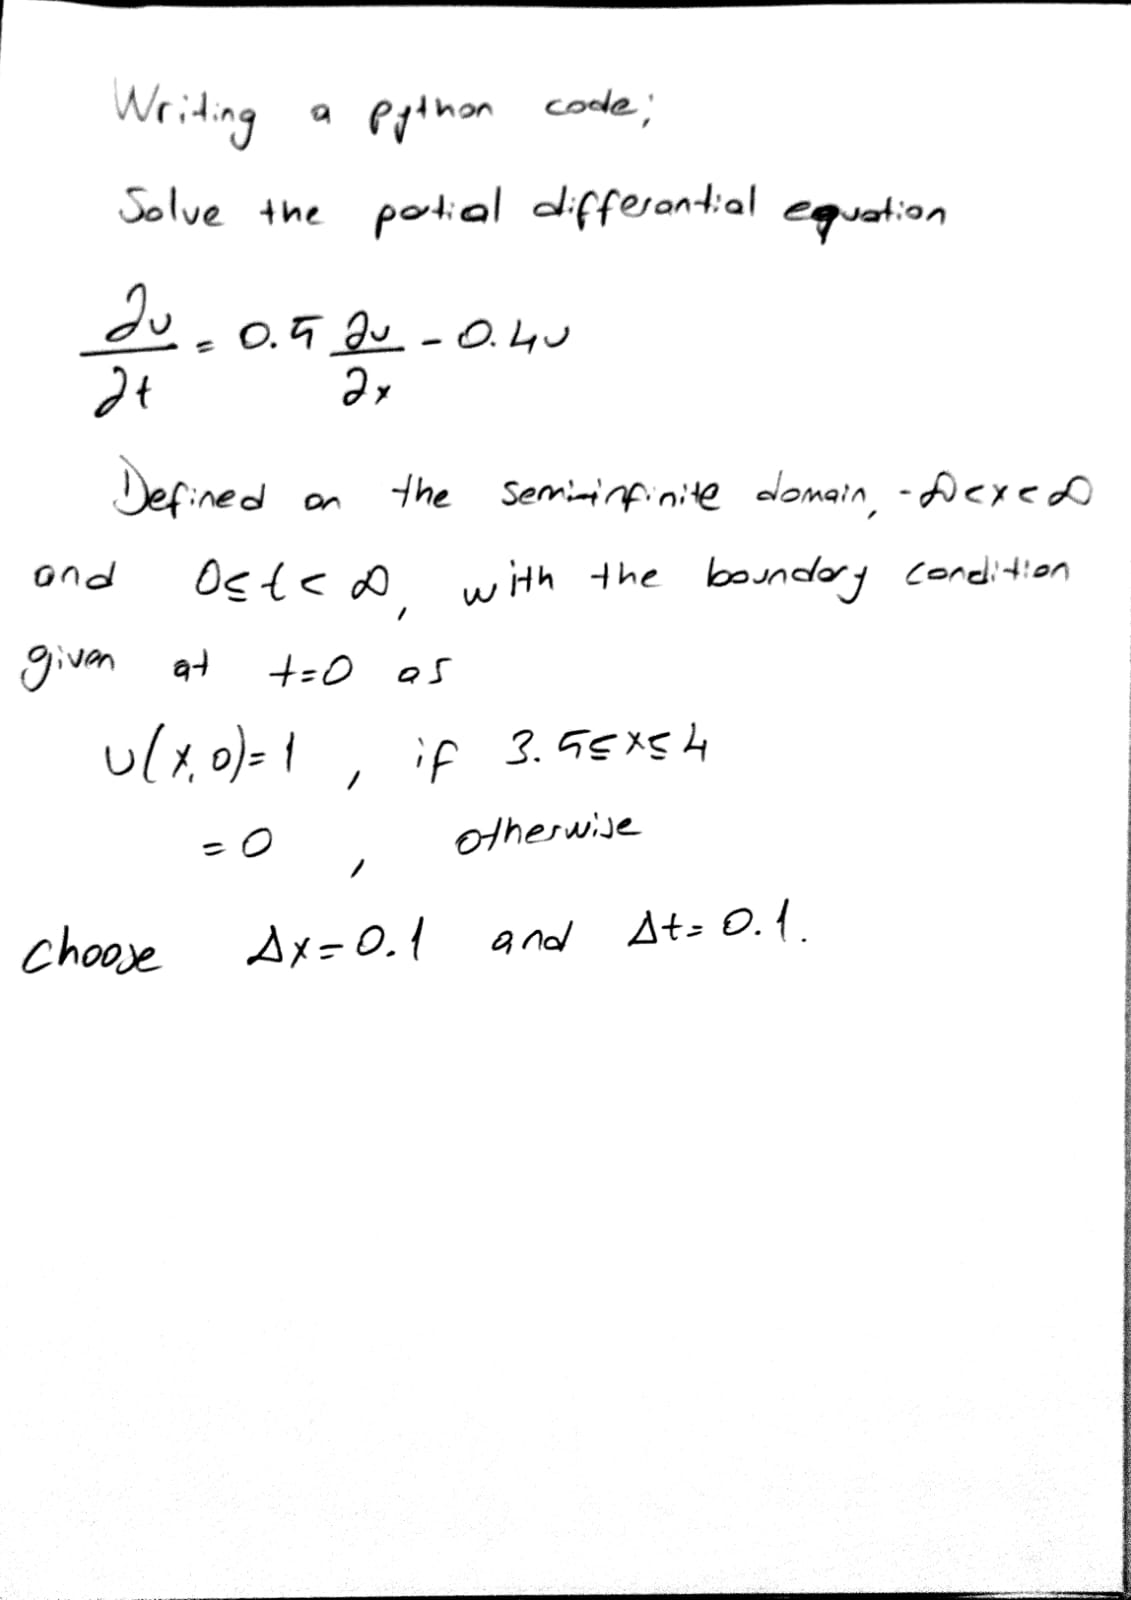 Writing a python code;
Solve the partial differantial equation
∂u/∂t = 0.5 ∂u/∂x - 0.4u
Defined on the semi-infinite domain, -∞<x<∞
and 0≤t<∞, with the boundary condition
given at t=0 as
u(x,0)=1 , if 3.5≤x≤4
=0 , otherwise
Choose Δx=0.1 and Δt=0.1.